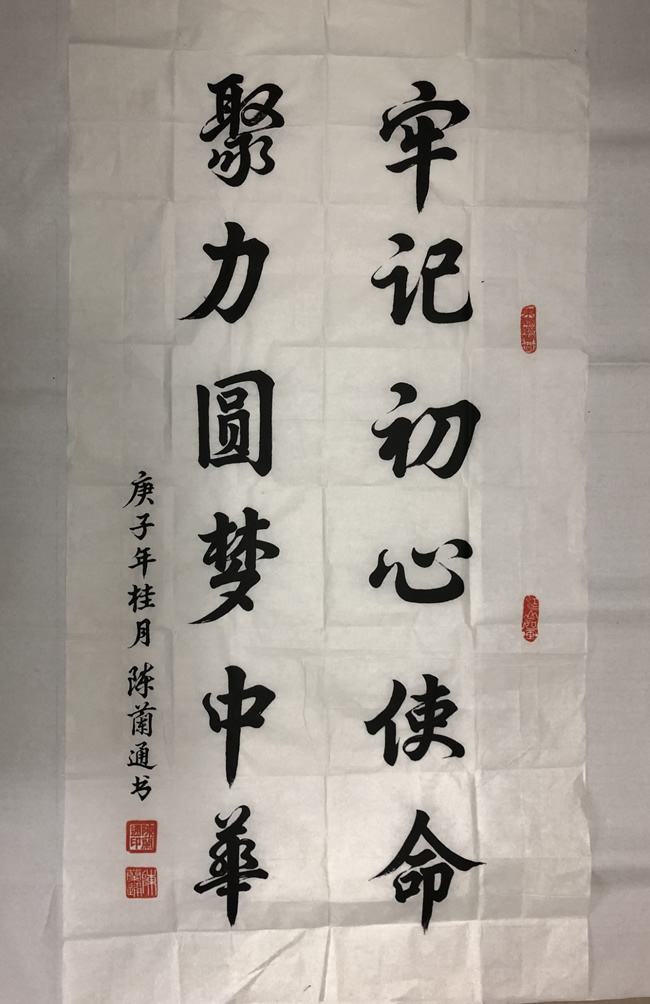 牢记初心使命
聚力圆梦中華
庚子年桂月陈蘭通书